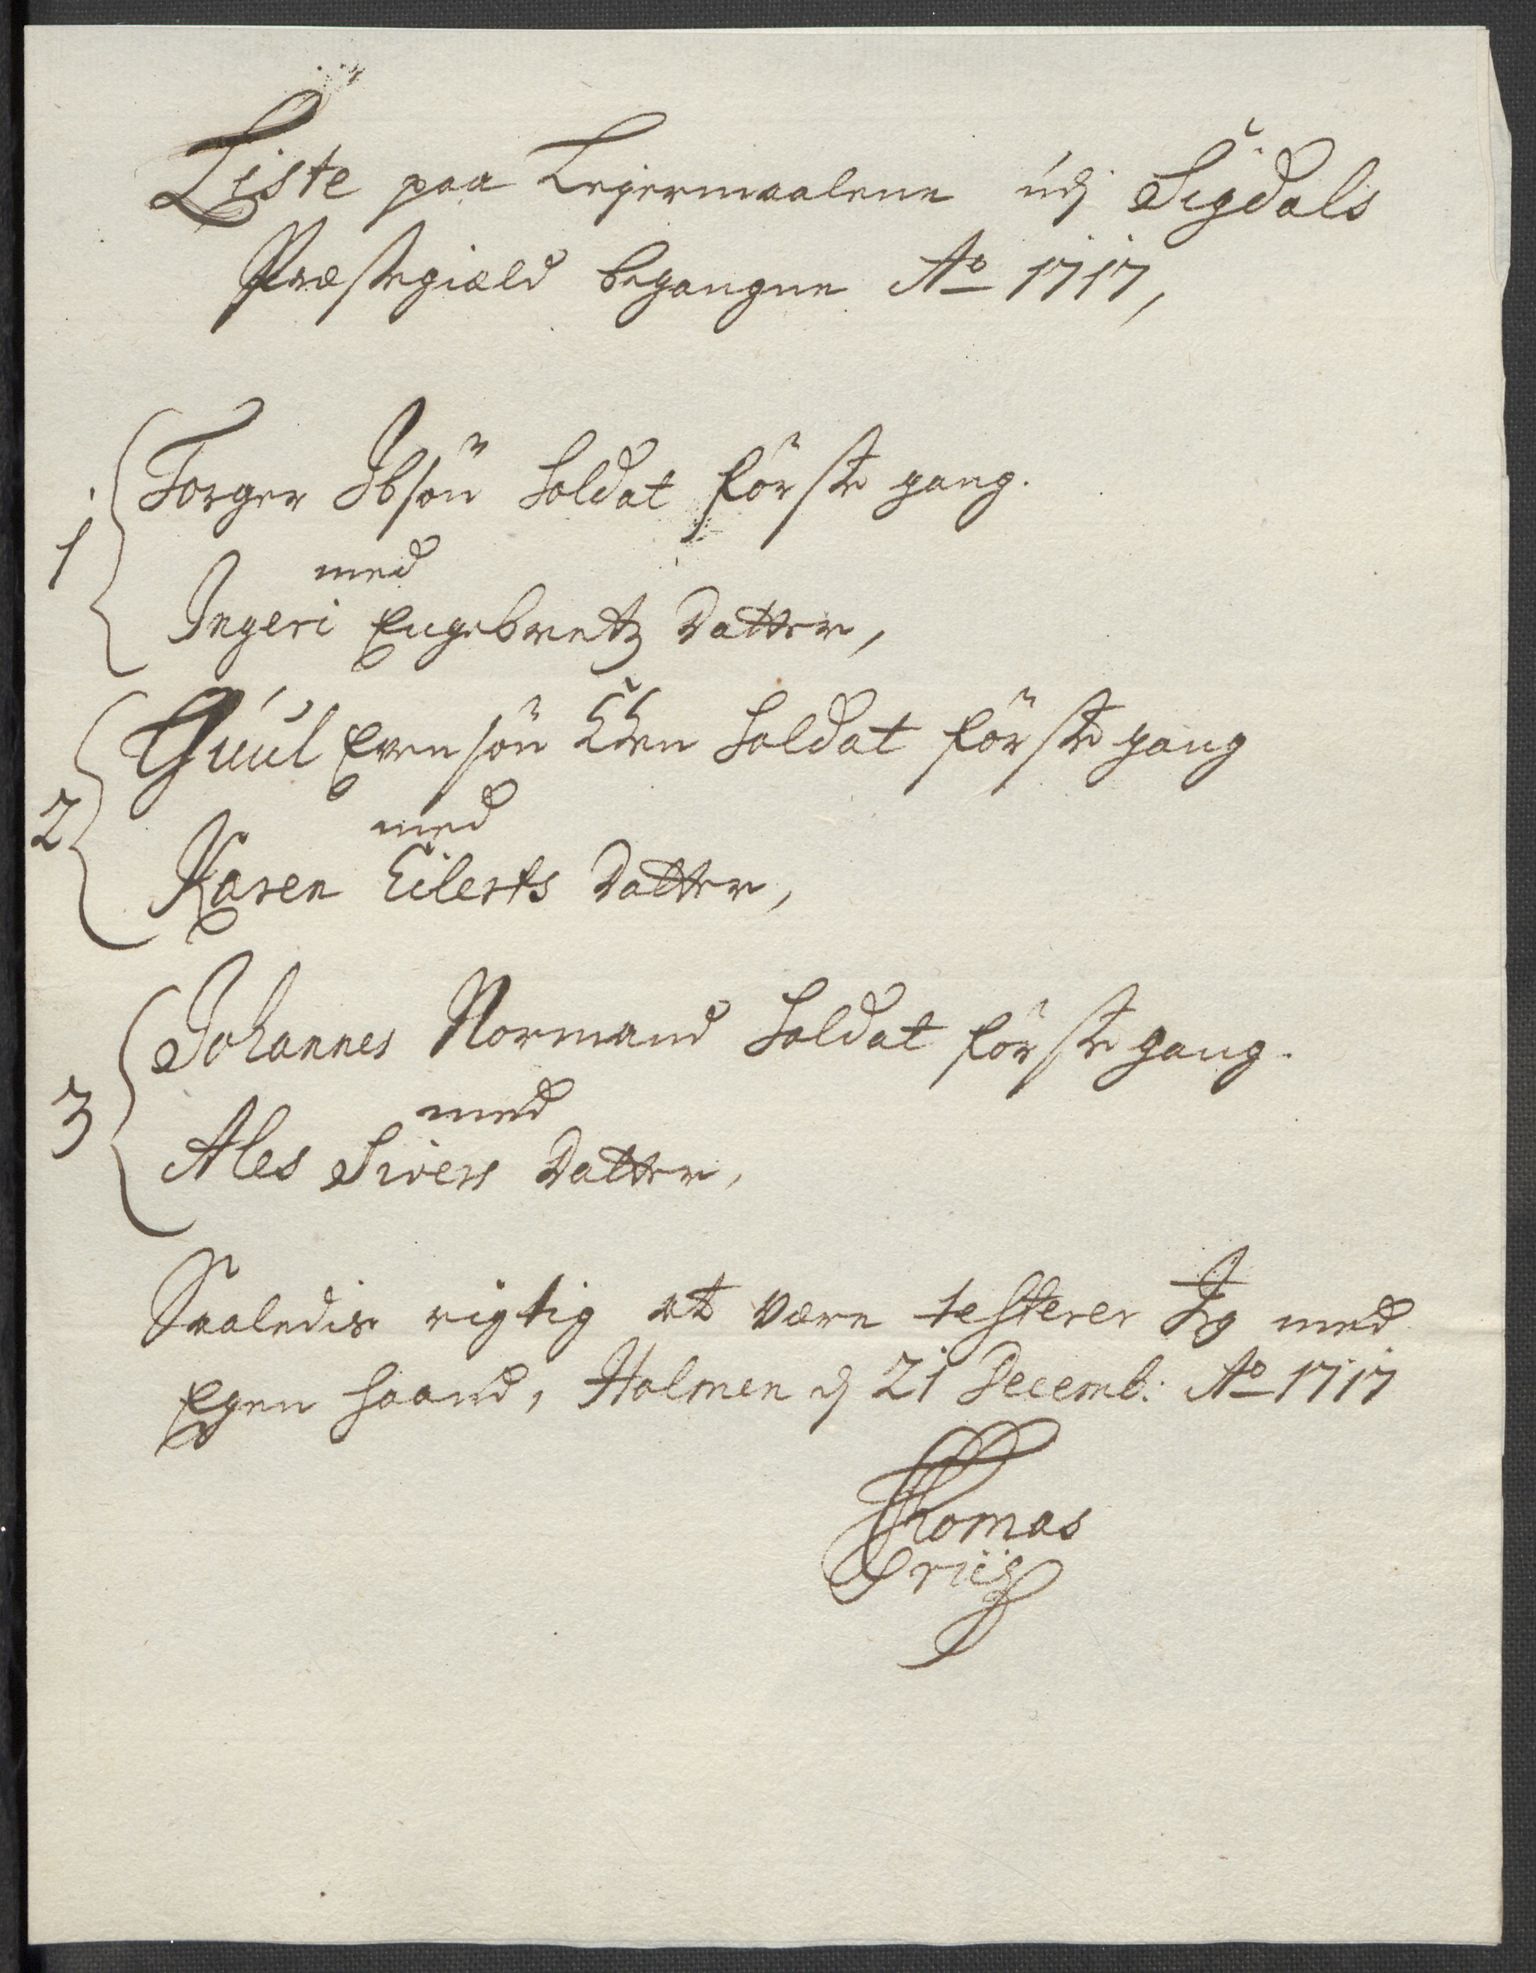 Liste paa Lejermaalene udj Sigdals
Præstegiæld begangne Ao 1717,
1 Torger Ibsön Soldat förste gang.
med
Ingeri Engebretz Datter,
2 Guul Evensön Soldat förste gang
med
Karen Eilerts Datter,
3 Johannes Normand Soldat förste gang.
med
Ales Sivers Datter,
Saaledis rigtig at være testerer Jeg med
Egen haand, Holmen d 21 Decemb: Ao 1717
Thomas